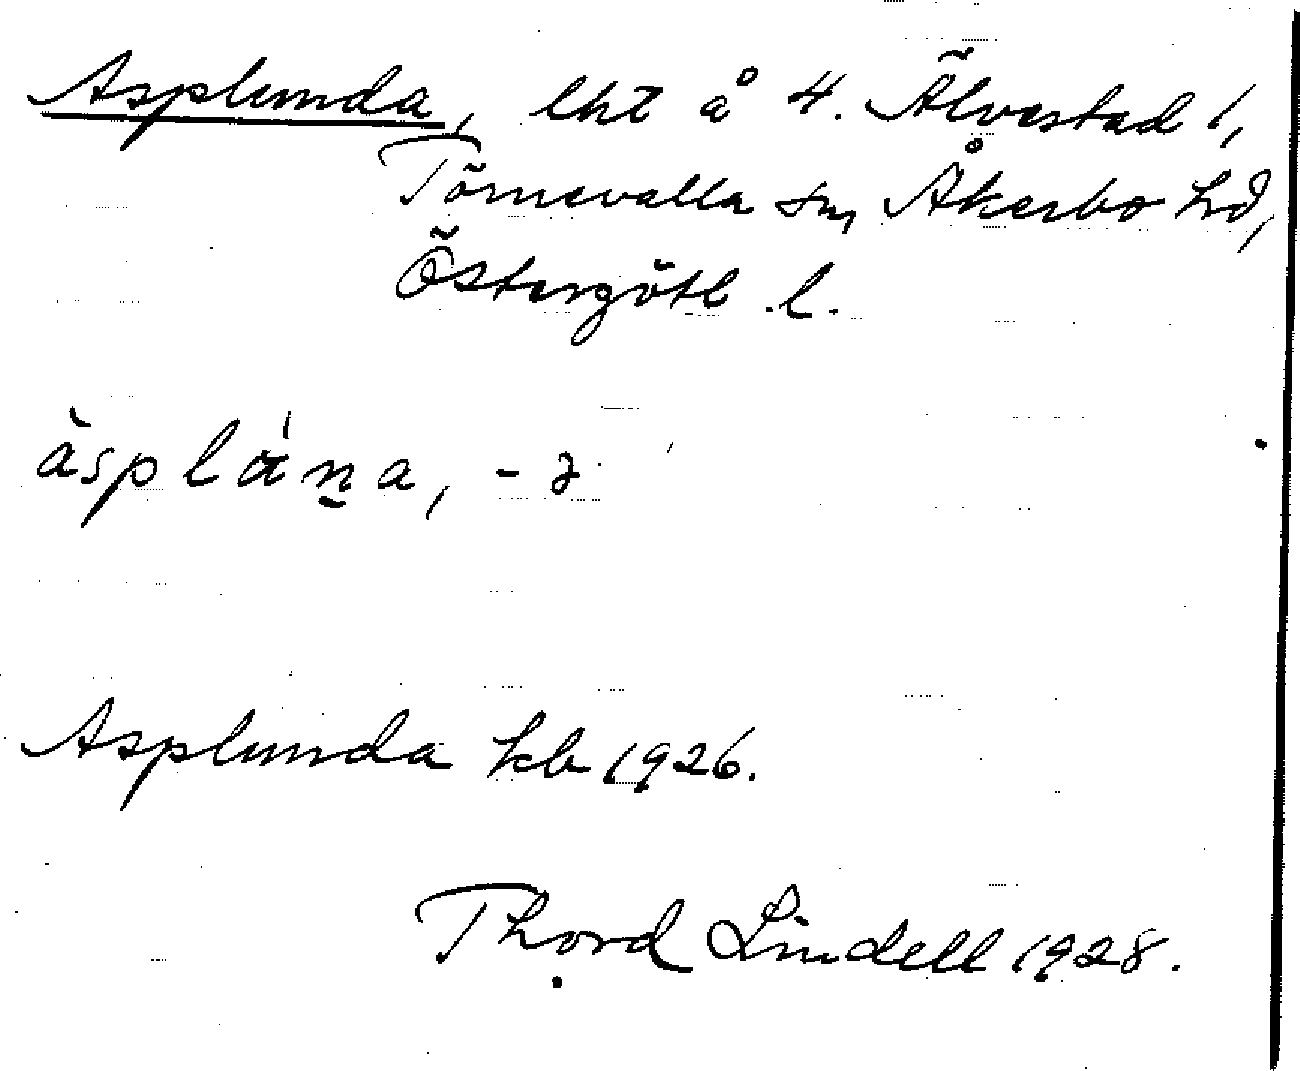 Asplunda, lht å 4. Älvestad 1,
Törnevalla sn, Åkerbo hd,
Östergötl. l.
àsplán̲a, -ə
Asplunda kb 1926.
Thord Lindell 1928.